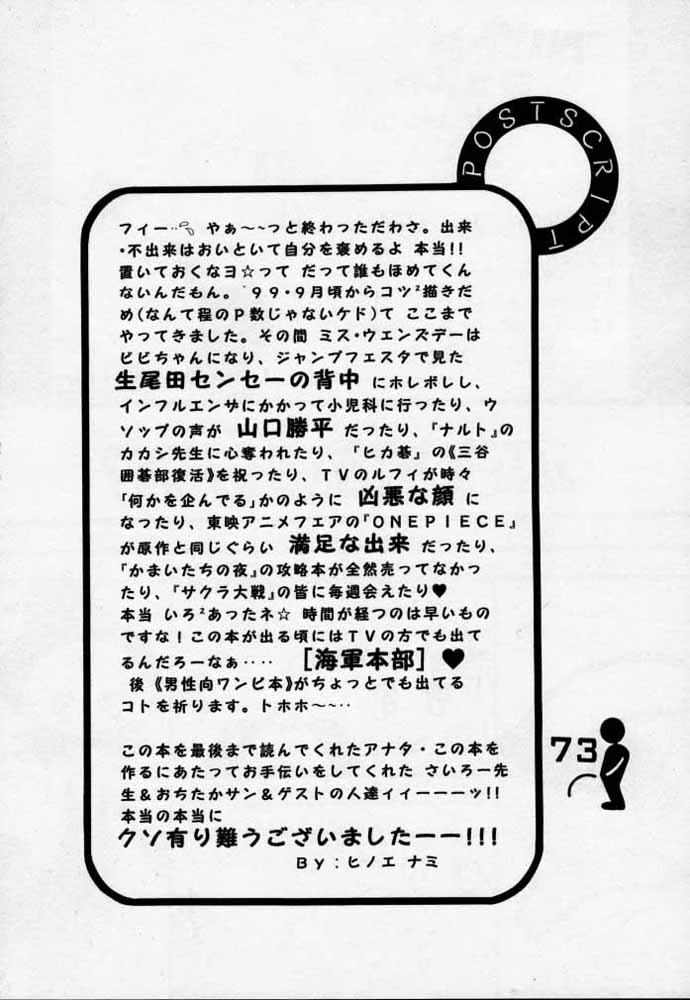 POSTSCRIPT
フィー‥ やぁ～～っと終わっただわさ。出来
・不出来はおいといて自分を褒めるよ 本当!!
置いておくなヨ☆って だって誰もほめてくん
ないんだもん。'99・9月頃からコツ²描きだ
め(なんて程のP数じゃないケド)て ここまで
やってきました。その間 ミス・ウェンズデーは
ビビちゃんになり、ジャンプフェスタで見た
生尾田センセーの背中 にホレボレし、
インフルエンサにかかって小児科に行ったり、ウ
ソップの声が 山口勝平 だったり、『ナルト』の
カカシ先生に心奪われたり、『ヒカ碁』の《三谷
囲碁部復活》を祝ったり、TVのルフィが時々
「何かを企んでる」かのように 凶悪な顔 に
なったり、東映アニメフェアの『ONEPIECE』
が原作と同じぐらい 満足な出来 だったり、
『かまいたちの夜』の攻略本が全然売ってなかっ
たり、『サクラ大戦』の皆に毎週会えたり♥
本当 いろ²あったネ☆ 時間が経つのは早いもの
ですな！この本が出る頃にはTVの方でも出て
るんだろーなぁ‥‥ ［海軍本部］♥
後《男性向ワンピ本》がちょっとでも出てる
コトを祈ります。トホホ～～‥
この本を最後まで読んでくれたアナタ・この本を
作るにあたってお手伝いをしてくれた さいろー先
生＆おちたかサン＆ゲストの人達ィィーーーッ!!
本当の本当に
クソ有り難うございましたーー!!!
By：ヒノエ ナミ
73